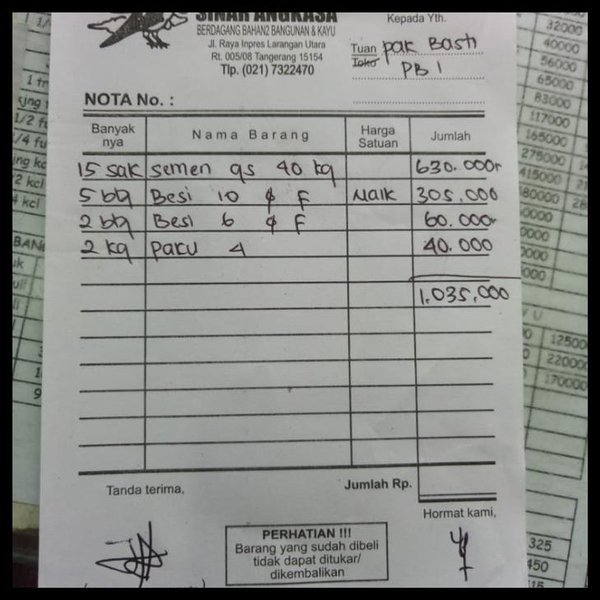 SINAR ANGKASA
BERDAGANG BAHAN2 BANGUNAN & KAYU
Jl. Raya Inpres Larangan Utara
Rt. 005/08 Tangerang 15154
Tlp. (021) 7322470
Kepada Yth.
Tuan pak Basti
Toko PB 1
NOTA No. :
Banyak nya Nama Barang Harga Satuan Jumlah
15 sak semen gs 40 kg 630.000
5 btg Besi 10 ϕ F Naik 305.000
2 btg Besi 6 ϕ F 60.000
2 kg paku 4 40.000
1.035.000
Jumlah Rp.
Tanda terima,
Hormat kami,
PERHATIAN !!!
Barang yang sudah dibeli
tidak dapat ditukar/
dikembalikan
32000
40000
56000
65000
83000
117000
165000
275000
415000
12500
220000
170000
325
450
115